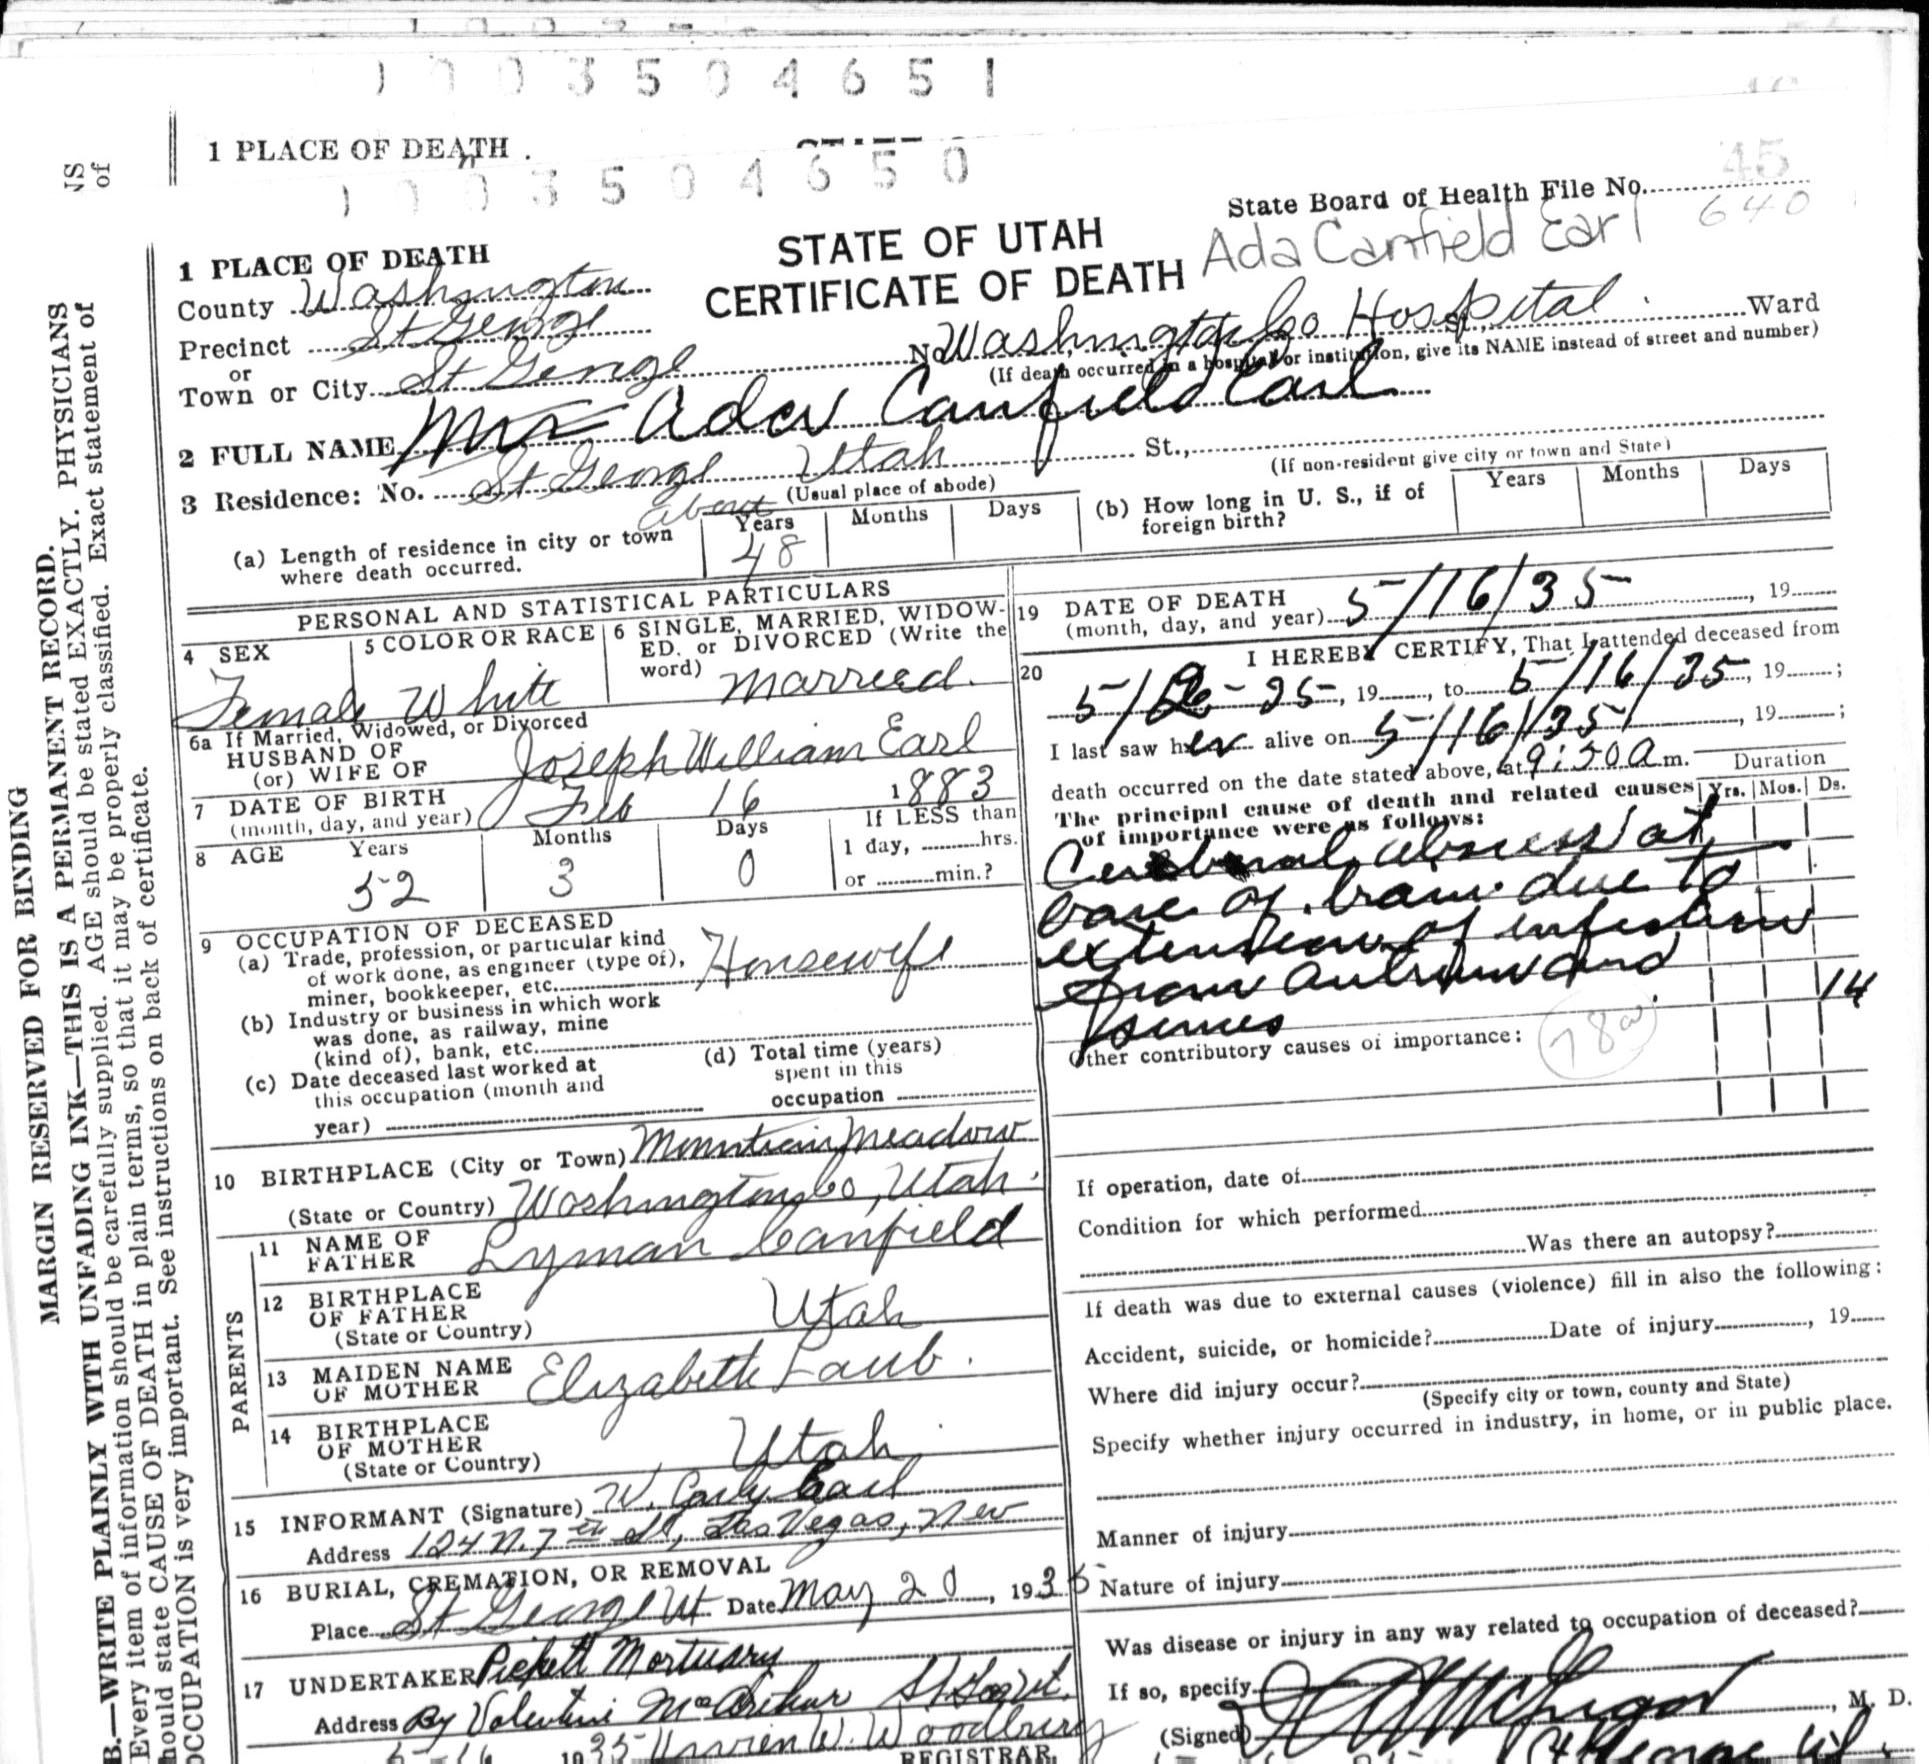 1003504651
1 PLACE OF DEATH .
1003504650
45
State Board of Health File No.
640
Ada Canfield Earl
STATE OF UTAH
CERTIFICATE OF DEATH
1 PLACE OF DEATH
County Washington
Precinct St George
or
Town or City St George
No Washington Co Hospital St., Ward
(If death occurred in a hospital or institution, give its NAME instead of street and number)
2 FULL NAME Mrs Ada Canfield Earl
3 Residence: No. St George Utah St.,
(Usual place of abode)
(If non-resident give city or town and State)
(a) Length of residence in city or town
where death occurred.
about
Years Months Days
48
(b) How long in U. S., if of
foreign birth?
Years Months Days
PERSONAL AND STATISTICAL PARTICULARS
4 SEX
Female
5 COLOR OR RACE
White
6 SINGLE, MARRIED, WIDOW-
ED, or DIVORCED (Write the
word) married.
6a If Married, Widowed, or Divorced
HUSBAND OF
(or) WIFE OF Joseph William Earl
7 DATE OF BIRTH
(month, day, and year) Feb 16 1883
8 AGE Years Months Days
52 3 0
If LESS than
1 day, hrs.
or min.?
9 OCCUPATION OF DECEASED
(a) Trade, profession, or particular kind
of work done, as engineer (type of),
miner, bookkeeper, etc. Housewife
(b) Industry or business in which work
was done, as railway, mine
(kind of), bank, etc.
(c) Date deceased last worked at
this occupation (month and
year)
(d) Total time (years)
spent in this
occupation
10 BIRTHPLACE (City or Town) Mountain Meadow
(State or Country) Washington Co, Utah.
PARENTS
11 NAME OF
FATHER Lyman Canfield
12 BIRTHPLACE
OF FATHER
(State or Country) Utah
13 MAIDEN NAME
OF MOTHER Elizabeth Laub.
14 BIRTHPLACE
OF MOTHER
(State or Country) Utah
15 INFORMANT (Signature) W. Earl
Address 124 N. 7th St, Las Vegas, Nev
16 BURIAL, CREMATION, OR REMOVAL
Place St George Ut Date May 20, 1935
17 UNDERTAKER Pickett Mortuary
Address By Valentine McArthur St Geo Ut.
1935 W. Woodbury
REGISTRAR
19 DATE OF DEATH
(month, day, and year) 5/16/35, 19
20 I HEREBY CERTIFY, That I attended deceased from
5/ 35, 19, to 5/16/35, 19 ;
I last saw her alive on 5/16/35, 19 ;
death occurred on the date stated above, at 9:50 a m.
Duration
The principal cause of death and related causes
of importance were as follows:
Yrs. Mos. Ds.
Cerebral abscess at
base of brain due to
extension of infection
from antrum and
sinuses
14
Other contributory causes of importance:
78a
If operation, date of
Condition for which performed
Was there an autopsy?
If death was due to external causes (violence) fill in also the following:
Accident, suicide, or homicide? Date of injury , 19
Where did injury occur?
(Specify city or town, county and State)
Specify whether injury occurred in industry, in home, or in public place.
Manner of injury
Nature of injury
Was disease or injury in any way related to occupation of deceased?
If so, specify
(Signed) McGregor, M. D.
St George Ut
MARGIN RESERVED FOR BINDING
B.—WRITE PLAINLY WITH UNFADING INK—THIS IS A PERMANENT RECORD.
Every item of information should be carefully supplied. AGE should be stated EXACTLY. PHYSICIANS
should state CAUSE OF DEATH in plain terms, so that it may be properly classified. Exact statement of
OCCUPATION is very important. See instructions on back of certificate.
NS
of